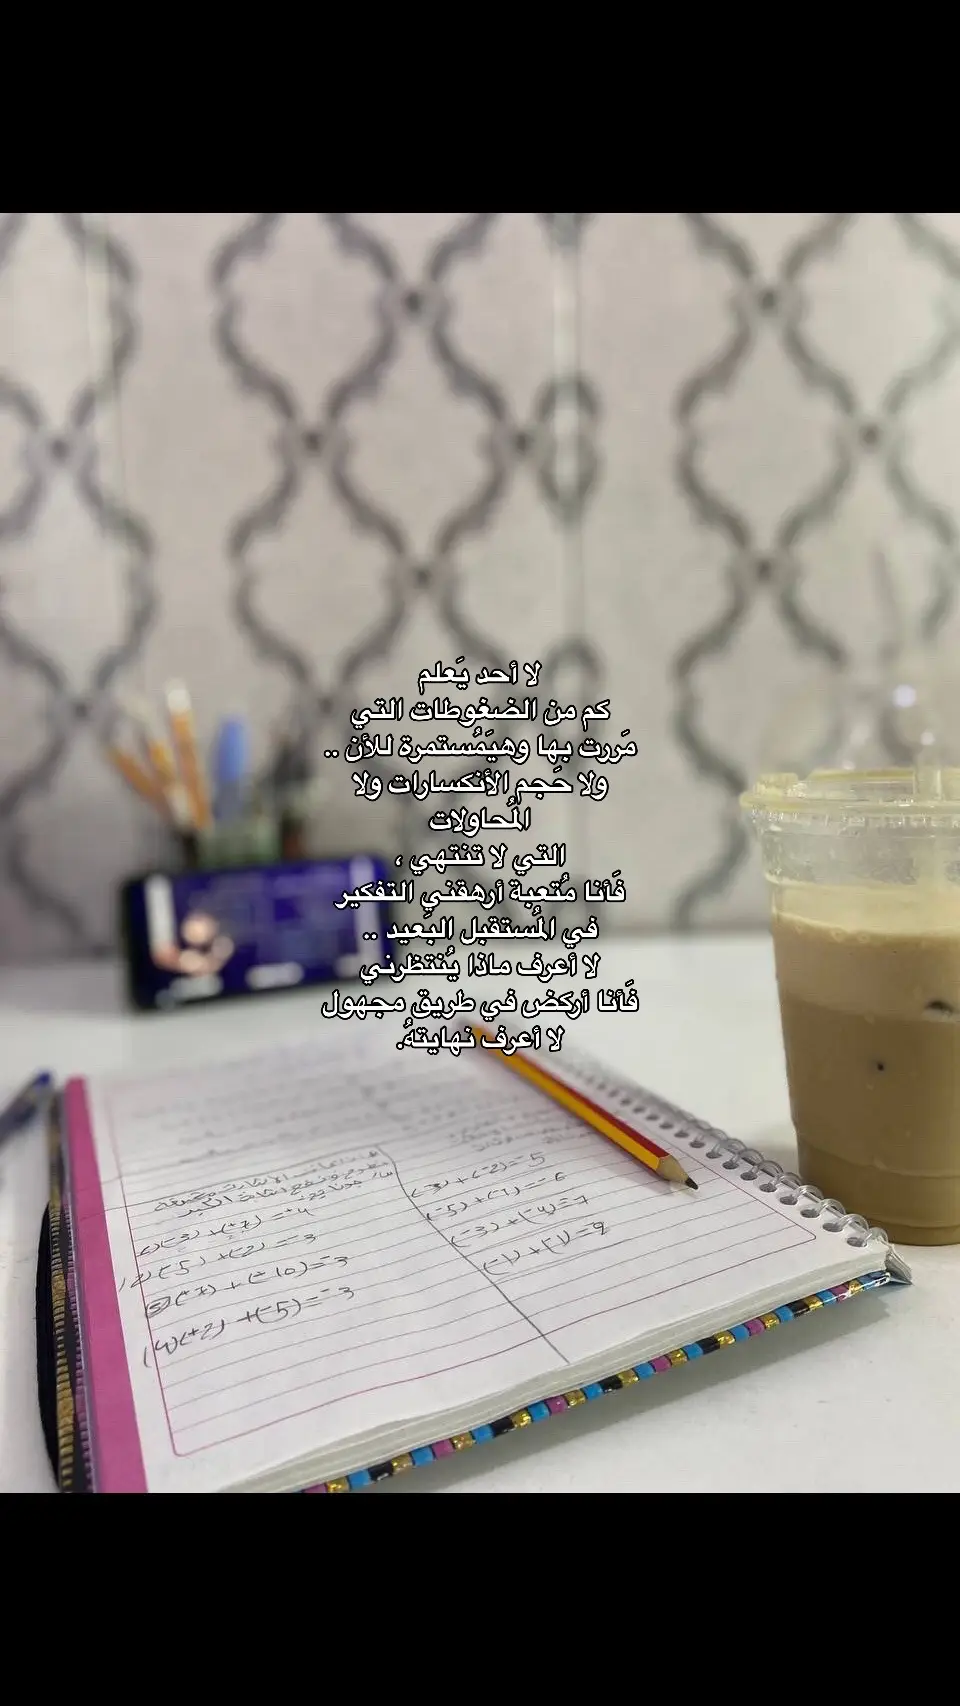 لا أحد يَعلم
كم من الضغوطات التي
مَررت بها وهيَمُستمرة للأن ..
ولا حَجم الأنكسارات ولا
المُحاولات
التي لا تنتهي ،
فَأنا مُتعبة أرهقني التفكير
في المُستقبل البَعيد ..
لا أعرف ماذا يُنتظرني
فَأنا أركض في طريق مجهول
لا أعرف نهايتهُ.
(-3) + (-2) = -5
(-5) + (-1) = -6
(-3) + (-4) = -7
2) (-5) + (+2) = -3
3) (+7) + (-10) = -3
(4) (+2) + (-5) = -3